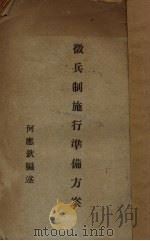 徵兵制施行準備方案
何應欽編述